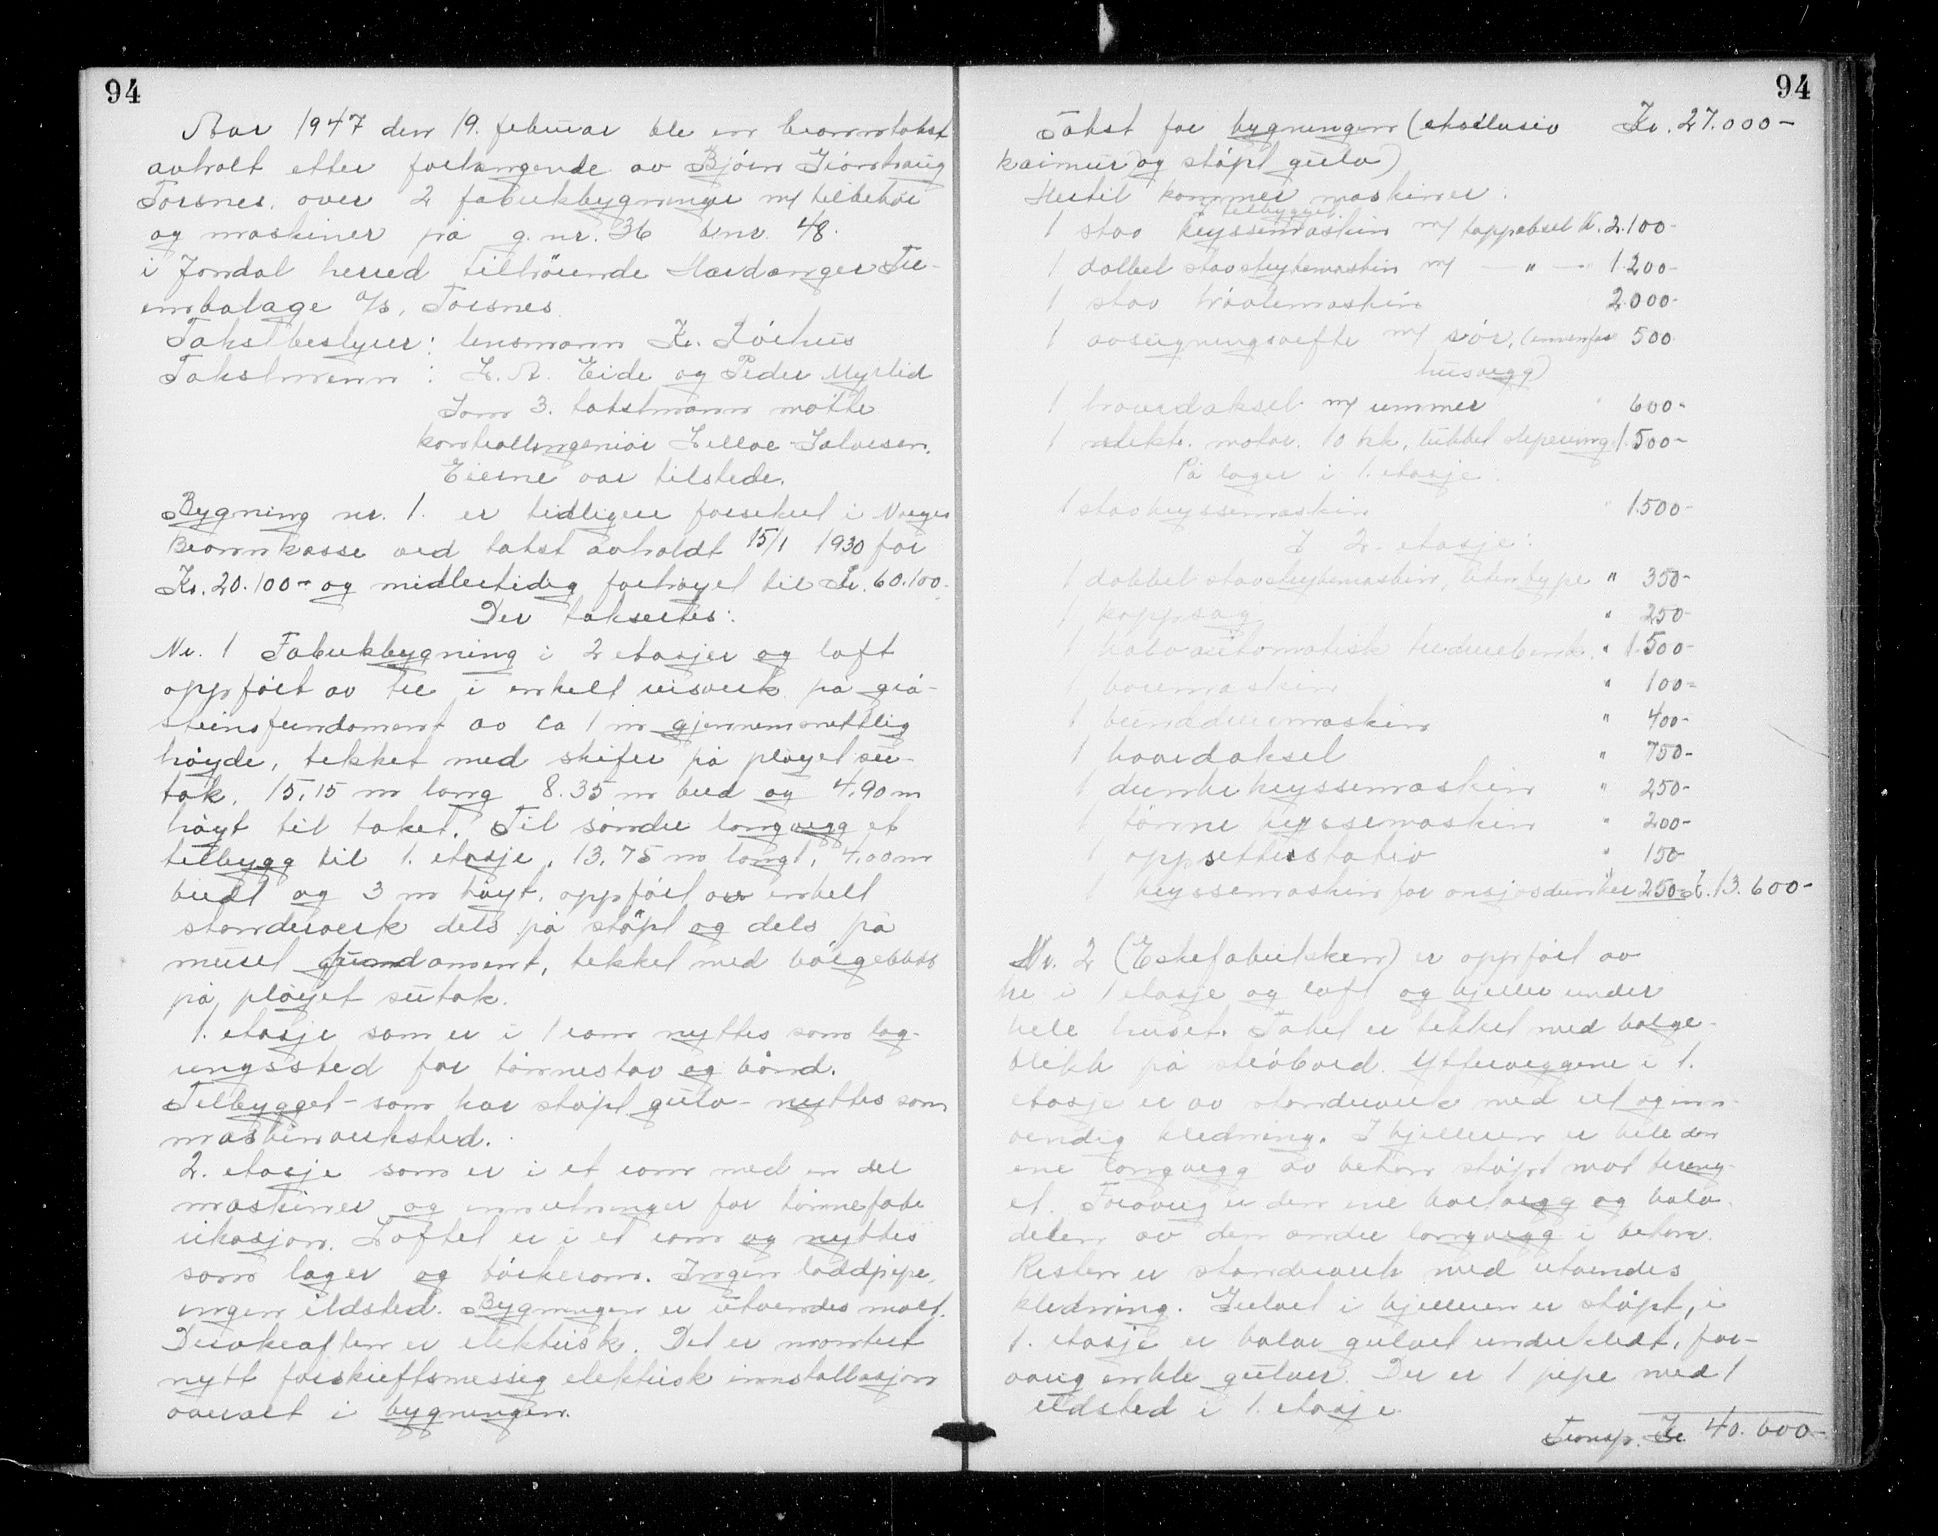 94
Aar 1947 den 19. februar ble en branntakst
avholt etter forlangende av Bjørn Trønhaug
Torsnes. over 2 fabrikkbygninger m/ tilbehør
og maskiner på g.nr. 36 b.nr. 48.
i Jondal herred tilhørende Hardanger Tre-
embalage a/s, Torsnes.
Takstbestyrer: lensmann Kr. Røehus
Takstmenn: L. A. Eide og Peder Myrlid
Som 3. takstmann møtte
kontrollingeniør Lilloe-Salvesen.
Eierne var tilstede.
Bygning nr. 1. er tidligere forsikret i Norges
Brannkasse ved takst avholdt 15/1 1930 for
Kr. 20.100- og midlertidig forhøyet til Kr. 60.100-
Der taksertes:
Nr. 1 Fabrikkbygning i 2 etasjer og loft
oppført av tre i enkelt reisverk på grå-
steinsfundament av ca 1 m gjennemsnittlig
høyde, tekket med skifer på pløyet su-
tak. 15,15 m lang 8.35 m bred og 4,90 m
høyt til taket. Til søndre langvegg et
tilbygg til 1. etasje, 13,75 m langt, 4,00 m
bredt og 3 m høyt, oppført av enkelt
stenderverk dels på støpt og dels på
muret fundament, tekket med bølgeblikk
på pløyet sutak.
1. etasje som er i 1 rom nyttes som lag-
ringssted for tønnestav og bånd.
Tilbygget - som har støpt gulv - nyttes som
maskinverksted.
2. etasje som er i et rom med en del
maskiner og innretninger for tønnefabr
ikasjon. Loftet er i et rom og nyttes
som lager og tørkerom. Ingen loddpipe,
ingen ildsted. Bygningen er utvendes malt.
Drivkraften er elektrisk. Det er montert
nytt forskriftsmessig elektrisk innstallasjon
overalt i bygningen.
94
Takst for bygningen (eksklusiv Kr. 27.000-
kaimur og støpt gulv)
Hertil kommer maskiner:
i tilbygget
1 stav kryssemaskin m/ kappaksel Kr. 2.100-
1 dobbel stavstrykemaskin m/ — " — " 1.200-
1 stav høvlemaskin 2.000-
1 avsugningsvifte m/ rør, (innenfor 500.
husvegg)
1 hovedaksel m/ remmer " 600-
1 elektr. motor. 10 hk, dekket 1.500-
På lager i 1. etasje.
1 stavkryssemaskin " 1.500-
I 2. etasje:
1 dobbel stavstrykemaskin, liten type " 350-
1 kappsag " 250-
1 halvautomatisk dreiebenk " 1.500-
1 boremaskin " 100-
1 bunddreiemaskin " 400-
1 hovedaksel " 750-
1 dunkekryssemaskin " 250-
1 tønne kryssemaskin " 200-
1 oppsetterstativ " 150
1 kryssemaskin for ansjosdunker " 250- Kr. 13.600-
Nr. 2 (Eskefabrikken) er oppført av
tre i 1 etasje og loft og kjeller under
hele huset. Taket er tekket med bølge-
blekk på strøbord. Ytterveggene i 1.
etasje er av stenderverk med ut og inn-
vendig kledning. I kjelleren er hele den
ene langvegg av betong støpt mot terreng-
et. Forøvrig er den ene kortvegg og halv-
delen av den andre langvegg i betong.
Resten er stenderverk med utvendes
kledning. Gulvet i kjelleren er støpt, i
1. etasje er halve gulvet underkledt, for-
øvrig enkle gulver. Der er 1 pipe med 1
ildsted i 1. etasje.
Transp. Kr. 40.600-